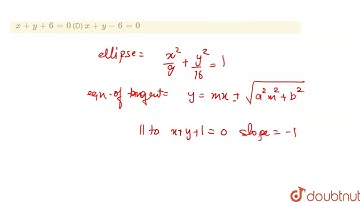 x + y + 6 = 0 (D) x + y − 6 = 0
ellipse = x²/9 + y²/16 = 1
eqn. of tangent = y = mx ± √(a²m² + b²)
|| to x+y+1 = 0 slope = -1
doubtnut